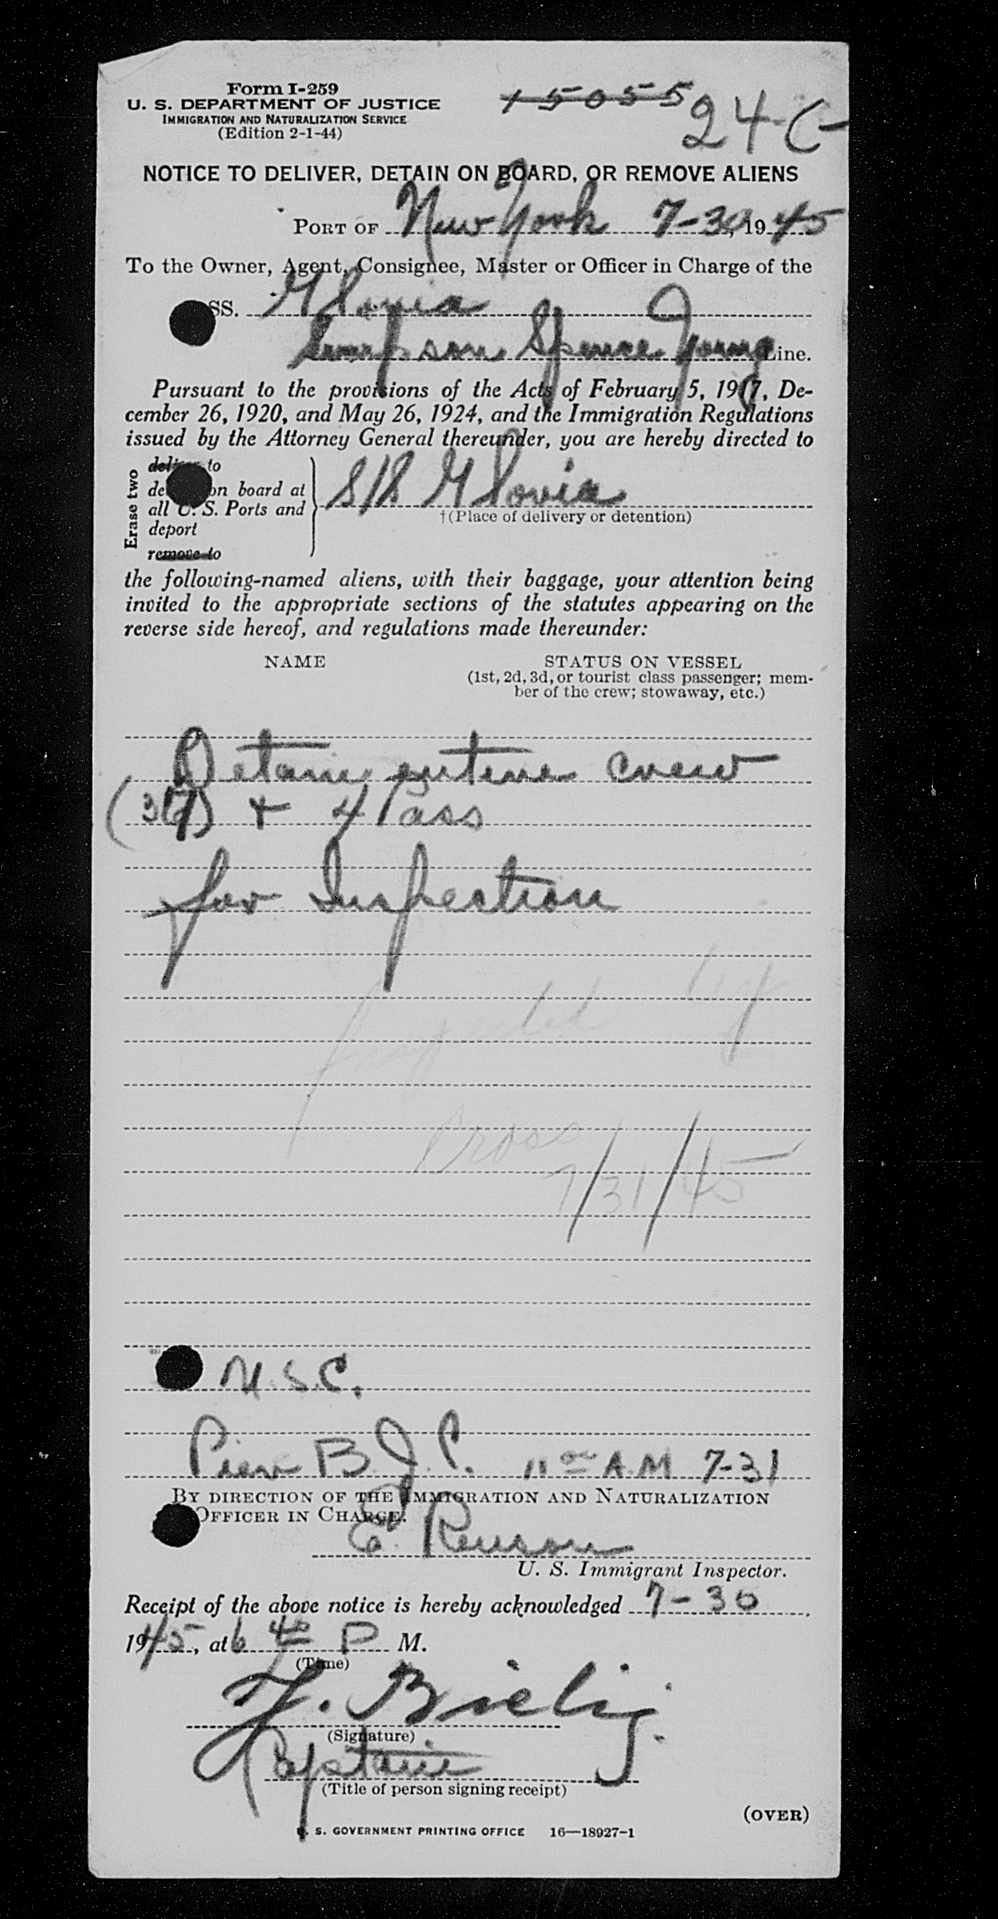 Form I-259
U. S. DEPARTMENT OF JUSTICE
IMMIGRATION AND NATURALIZATION SERVICE
(Edition 2-1-44)
15055
24 C
NOTICE TO DELIVER, DETAIN ON BOARD, OR REMOVE ALIENS
PORT OF New York 7-30, 1945
To the Owner, Agent, Consignee, Master or Officer in Charge of the
SS.
Spence Young Line.
Pursuant to the provisions of the Acts of February 5, 1917, De-
cember 26, 1920, and May 26, 1924, and the Immigration Regulations
issued by the Attorney General thereunder, you are hereby directed to
Erase two
deliver to
on board at
all U. S. Ports and
deport
remove to
S/S
†(Place of delivery or detention)
the following-named aliens, with their baggage, your attention being
invited to the appropriate sections of the statutes appearing on the
reverse side hereof, and regulations made thereunder:
NAME
STATUS ON VESSEL
(1st, 2d, 3d, or tourist class passenger; mem-
ber of the crew; stowaway, etc.)
Detain entire crew
(37) + 4 Pass
for Inspection
7/31/45
U.S.C.
Pier B. J. C. 11 00 A.M 7-31
BY DIRECTION OF THE IMMIGRATION AND NATURALIZATION
OFFICER IN CHARGE:
E.
U. S. Immigrant Inspector.
Receipt of the above notice is hereby acknowledged 7-30,
1945, at 6 40 P M.
(Time)
Bielig
(Signature)
Captain
(Title of person signing receipt)
(OVER)
U. S. GOVERNMENT PRINTING OFFICE 16—18927-1